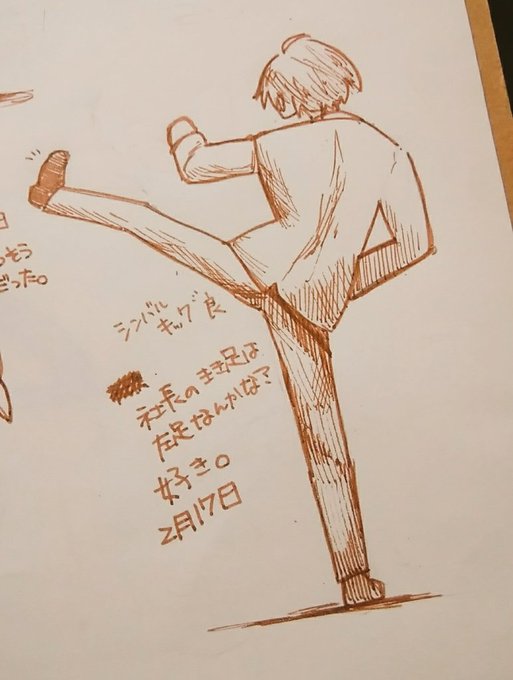 日
そう
だった。
シンバル
キック良
社長のきき足は
左足なんかな?
好き。
2月17日